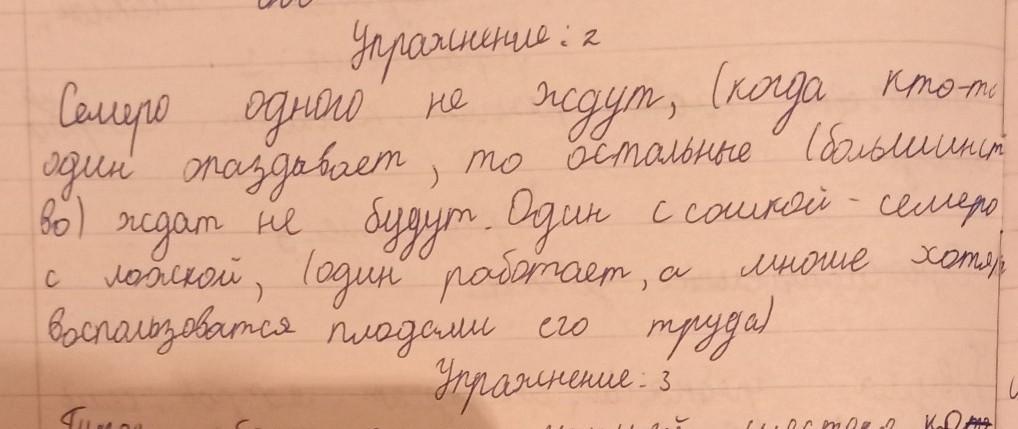 Упражнение: 2
Семеро одного не ждут, (когда кто-то
один опаздавает, то остальные (большинст
во) ждат не будут. Один с сошкой - семеро
с ложкой, (один работает, а мноше хотят
воспользоватся плодами его труда)
Упражнение: 3